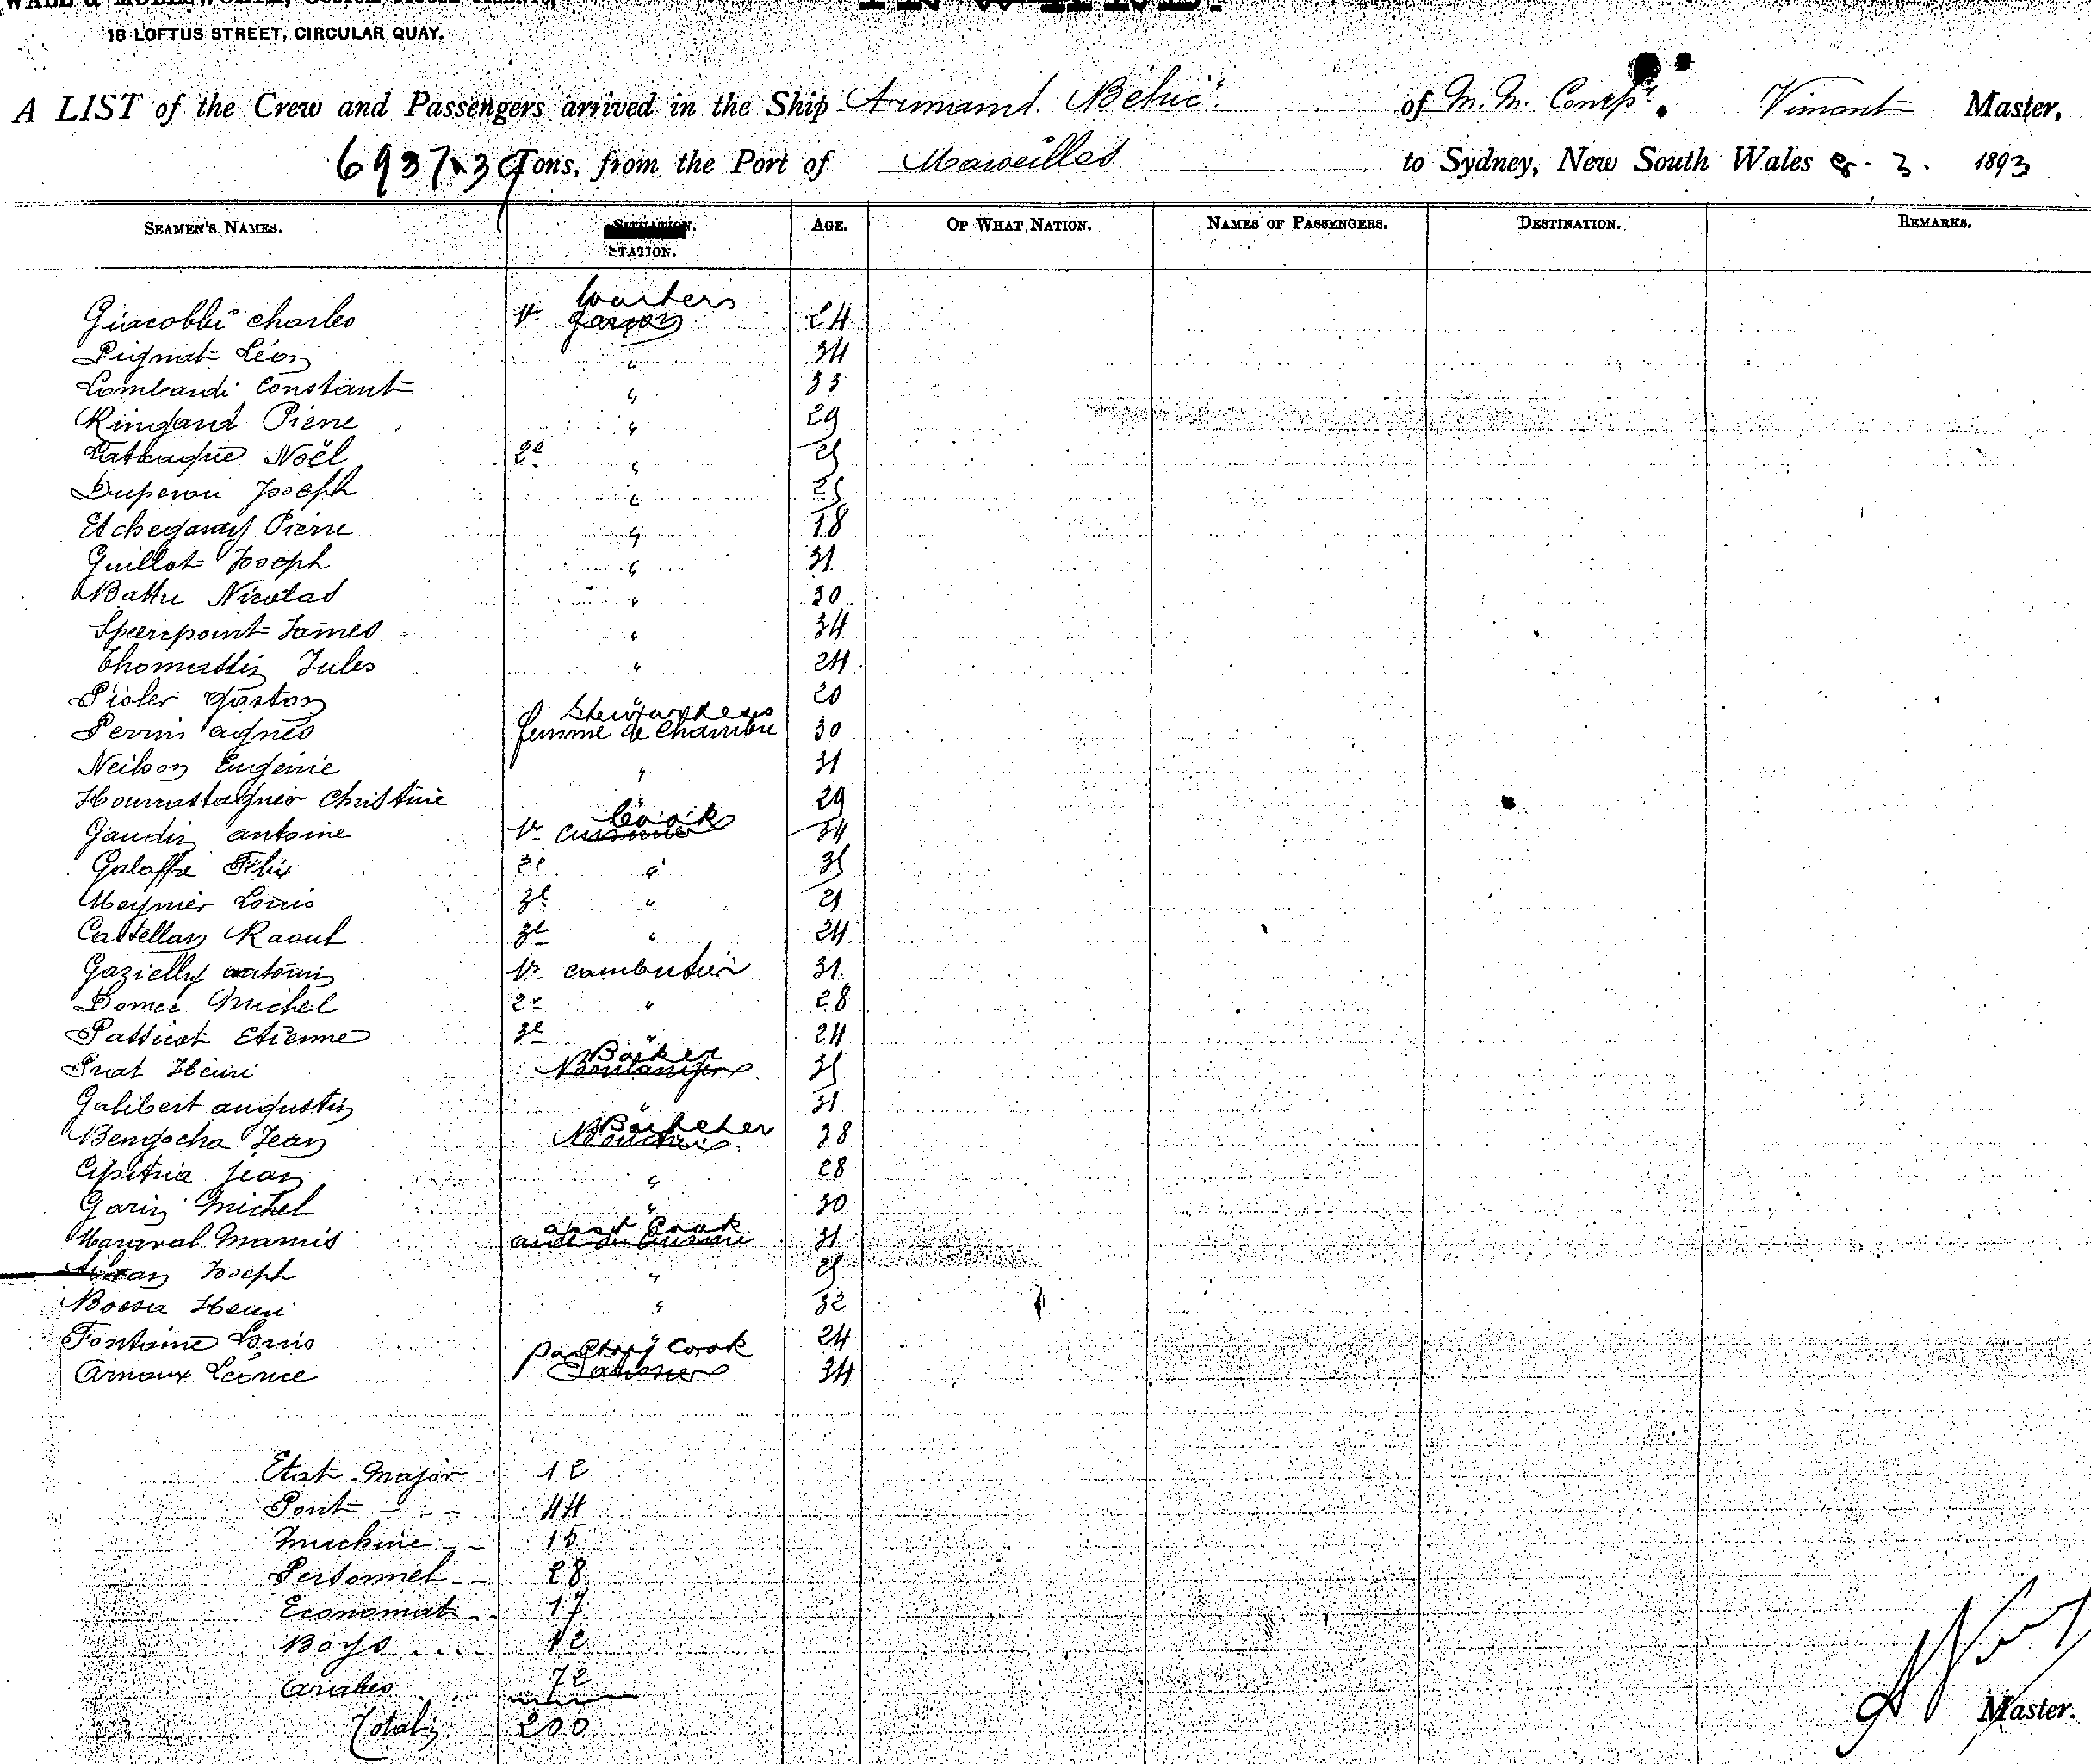 18 LOFTUS STREET, CIRCULAR QUAY.
INWARD.
A LIST of the Crew and Passengers arrived in the Ship Armand Béhic of M. M. Comp. Vimont Master,
6937.39 Tons, from the Port of Marseilles to Sydney, New South Wales 8. 3. 1893
SEAMEN'S NAMES. STATION. AGE. OF WHAT NATION. NAMES OF PASSENGERS. DESTINATION. REMARKS.
Waiters
Giacobbi Charles 1r garçon 24
Pignat Léon " 34
Lombardi Constant " 33
Ringand Pierre " 29
Noël 2e " 25
Duperou Joseph " 25
Etchegaray Pierre " 18
Guillot Joseph " 31
Battu Nicolas " 30
Speerpoint James " 34
Thomassin Jules " 24
Pioler Gaston " 20
Stewardess
Perrin Agnès femme de chambre 30
Neilson Eugénie " 31
Hourastagner Christine " 29
Cook
Gaudin Antoine 1r cuisinier 34
Galaffre Félix 2e " 35
Meynier Louis 3e " 21
Castellan Raoul 3e " 24
Gazielly Antonin 1r cambusier 31
Domec Michel 2e " 28
Passicot Etienne 3e " 24
Baker
Prat Henri Boulanger 35
Galibert Augustin " 31
Butcher
Bengocha Jean Boucher 38
Apitria Jean " 28
Garin Michel " 30
asst Cook
Maraval Mamis aide de cuisine 31
Joseph " 25
Bossa Henri " 32
Fontaine Louis " 24
Pastry Cook
Arnoux Léonce Patissier 34
Etat-Major 12
Pont - - 44
Machine - - 15
Personnel - - 28
Economat - - 17
Boys .... 12
Arabes 72
Total 200
Master.